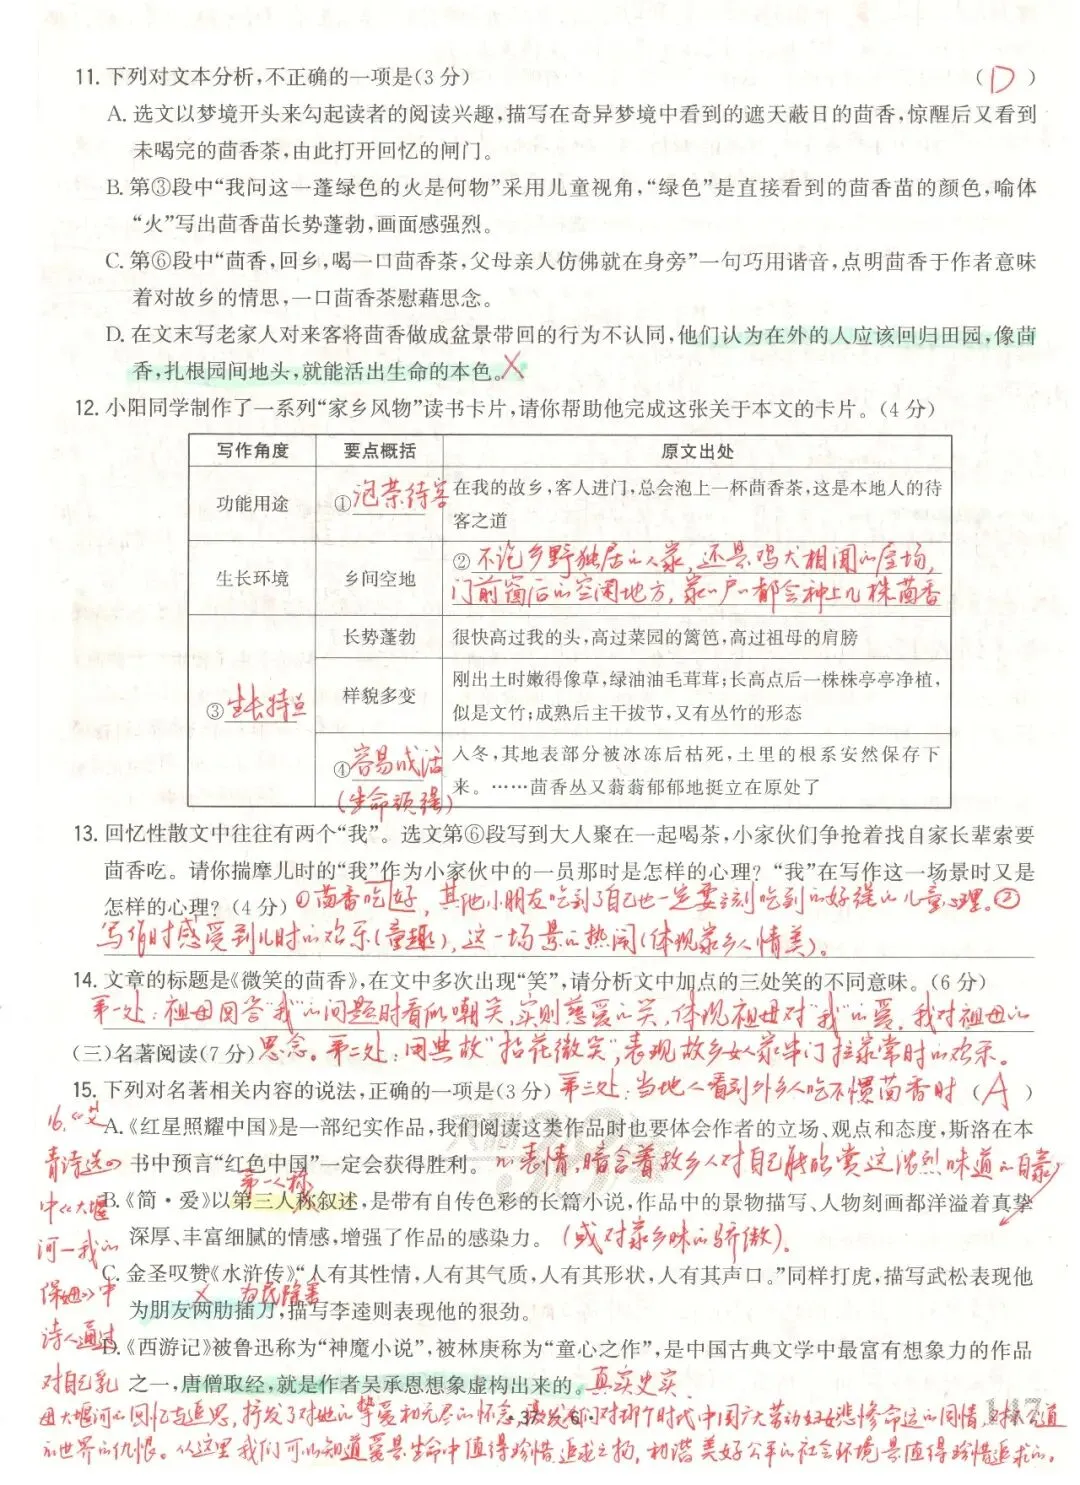 11. 下列对文本分析,不正确的一项是(3 分) ( D )
A. 选文以梦境开头来勾起读者的阅读兴趣,描写在奇异梦境中看到的遮天蔽日的茴香,惊醒后又看到
未喝完的茴香茶,由此打开回忆的闸门。
B. 第③段中“我问这一蓬绿色的火是何物”采用儿童视角,“绿色”是直接看到的茴香苗的颜色,喻体
“火”写出茴香苗长势蓬勃,画面感强烈。
C. 第⑥段中“茴香,回乡,喝一口茴香茶,父母亲人仿佛就在身旁”一句巧用谐音,点明茴香于作者意味
着对故乡的情思,一口茴香茶慰藉思念。
D. 在文末写老家人对来客将茴香做成盆景带回的行为不认同,他们认为在外的人应该回归田园,像茴
香,扎根园间地头,就能活出生命的本色。
12. 小阳同学制作了一系列“家乡风物”读书卡片,请你帮助他完成这张关于本文的卡片。(4 分)
写作角度 要点概括 原文出处
功能用途 ①泡茶待客 在我的故乡,客人进门,总会泡上一杯茴香茶,这是本地人的待
客之道
生长环境 乡间空地 ②不论乡野独居的人家,还是鸡犬相闻的屋场,
门前窗后的空闲地方,家家户户都会种上几株茴香
长势蓬勃 很快高过我的头,高过菜园的篱笆,高过祖母的肩膀
③生长特点 样貌多变 刚出土时嫩得像草,绿油油毛茸茸;长高点后一株株亭亭净植,
似是文竹;成熟后主干拔节,又有丛竹的形态
④容易成活 入冬,其地表部分被冰冻后枯死,土里的根系安然保存下
(生命顽强) 来。……茴香丛又蓊蓊郁郁地挺立在原处了
13. 回忆性散文中往往有两个“我”。选文第⑥段写到大人聚在一起喝茶,小家伙们争抢着找自家长辈索要
茴香吃。请你揣摩儿时的“我”作为小家伙中的一员那时是怎样的心理？“我”在写作这一场景时又是
怎样的心理？(4 分) ①茴香吃好,其他小朋友吃到了自己也一定要立刻吃到的好强的儿童心理。②
写作时感受到儿时的欢乐(童趣),这一场景的热闹(体现家乡人情美)。
14. 文章的标题是《微笑的茴香》,在文中多次出现“笑”,请分析文中加点的三处笑的不同意味。(6 分)
第一处:祖母回答“我”的问题时看似嘲笑,实则慈爱的笑,体现祖母对“我”的爱,我对祖母的
(三)名著阅读(7 分) 思念。第二处:用典故“拈花微笑”,表现故乡女人家串门拉家常时的欢乐。
15. 下列对名著相关内容的说法,正确的一项是(3 分) 第三处:当地人看到外乡人吃不惯茴香时 ( A )
16.《艾 A.《红星照耀中国》是一部纪实作品,我们阅读这类作品时也要体会作者的立场、观点和态度,斯洛在本
青诗选》 书中预言“红色中国”一定会获得胜利。 的表情,暗含着故乡人对自己能欣赏这浓烈味道的自豪
第一人称
中《大堰 B.《简·爱》以第三人称叙述,是带有自传色彩的长篇小说,作品中的景物描写、人物刻画都洋溢着真挚
河—我的 深厚、丰富细腻的情感,增强了作品的感染力。 (或对家乡味的骄傲)。
C. 金圣叹赞《水浒传》“人有其性情,人有其气质,人有其形状,人有其声口。”同样打虎,描写武松表现他
保姆》中 为民除害
为朋友两肋插刀,描写李逵则表现他的狠劲。
诗人通过 D.《西游记》被鲁迅称为“神魔小说”,被林庚称为“童心之作”,是中国古典文学中最富有想象力的作品
对自己乳 之一,唐僧取经,就是作者吴承恩想象虚构出来的。 真实史实
母大堰河的回忆与追思,抒发了对她的挚爱和无尽的怀念,激发人们对那个时代中国广大劳动妇女悲惨命运的同情,对不公道
的世界的仇恨。从这里我们可以知道爱是生命中值得珍惜追求之物,和谐美好公平的社会环境是值得珍惜追求的。